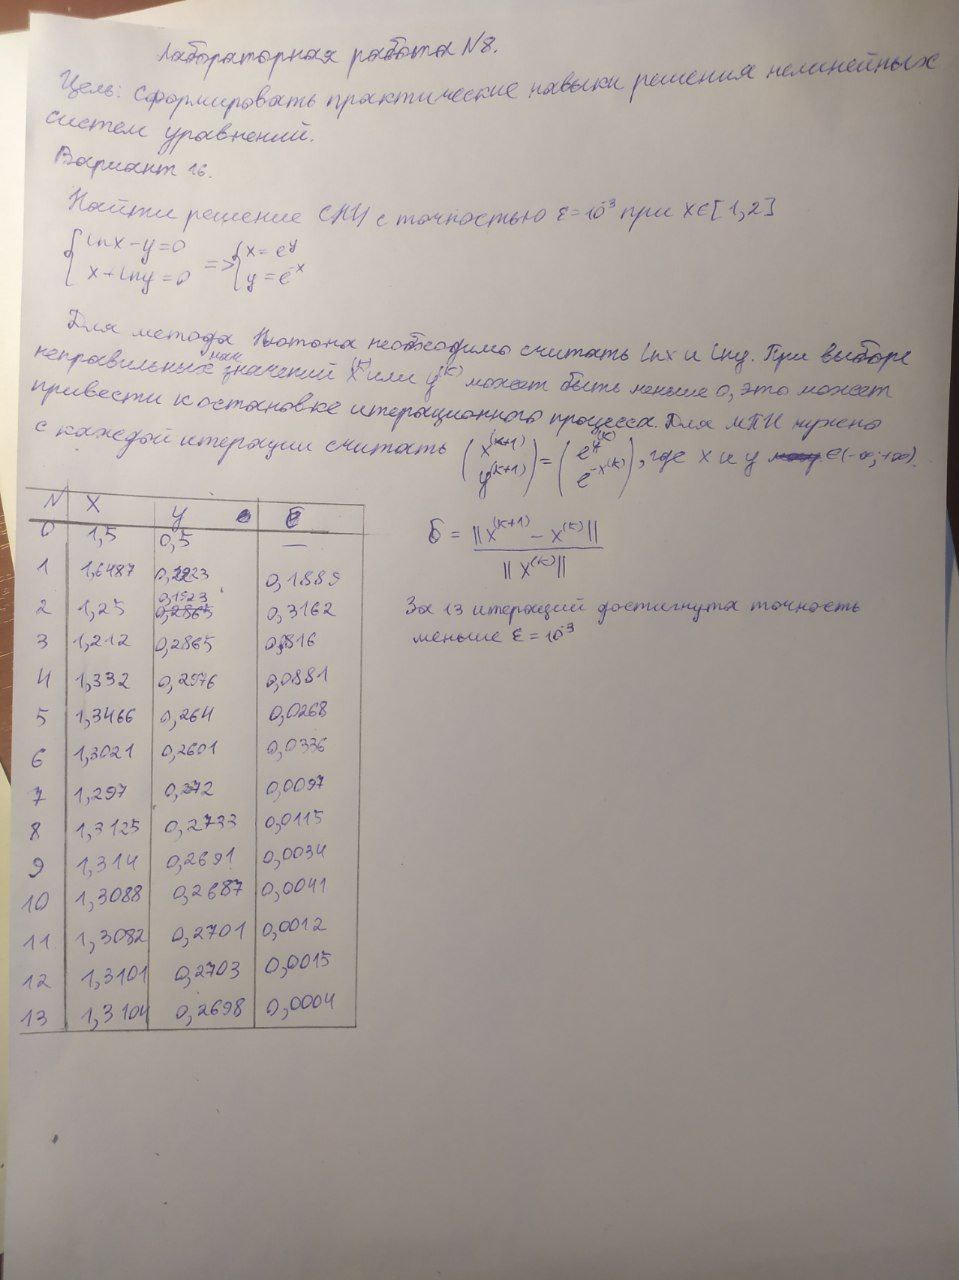 Лабораторная работа N8.
Цель: Сформировать практические навыки решения нелинейных
систем уравнений.
Вариант 16.
Найти решение СНУ с точностью ε=10⁻³ при x∈[1,2]
{ lnx-y=0 => { x=e^y
{ x+lny=0 { y=e^-x
Для метода Ньютона необходимо считать lnx и lny. При выборе
неправильных нач значений x^(k) или y^(k) может быть меньше 0, это может
привести к остановке итерационного процесса. Для МПИ нужно
с каждой итерации считать (x^(k+1) y^(k+1)) = (e^y^(k) e^-x^(k)), где x и y ∈(-∞;+∞).
N x y δ
0 1,5 0,5 —
1 1,6487 0,2223 0,1889
2 1,25 0,1923 0,3162
3 1,212 0,2865 0,0816
4 1,332 0,2976 0,0881
5 1,3466 0,264 0,0268
6 1,3021 0,2601 0,0336
7 1,297 0,272 0,0097
8 1,3125 0,2733 0,0115
9 1,314 0,2691 0,0034
10 1,3088 0,2687 0,0041
11 1,3082 0,2701 0,0012
12 1,3101 0,2703 0,0015
13 1,3104 0,2698 0,0004
δ = ||x^(k+1) - x^(k)||
||x^(k)||
За 13 итераций достигнута точность
меньше ε=10⁻³